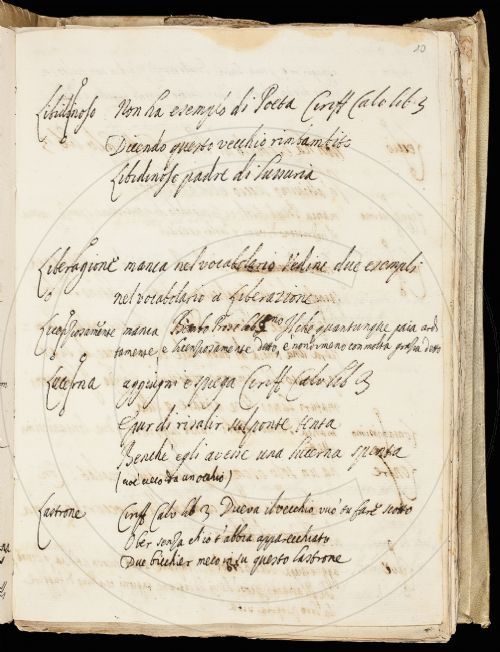 10
Libidinoso Non ha esemplo di Poeta Ciriff Calv lib 3
Dicendo questo vecchio rimbambito
Libidinoso padre di Lussuria
Liberagione manca nel vocabolario Vedine due esempli
nel vocabolario a Liberazione
Licenziosamente manca Bembo Prose lib Il che quantunque paia ardi
tamente, e licenziosamente detto, è nondimeno con molta grazia detto
Lucerna aggiugni e spiega Ciriff Calv lib 3
E pur di risalir sul ponte tenta
Benchè egli avesse una lucerna spenta
(cioè cieco da un occhio)
Castrone Ciriff Calv lib 3 Diceva il vecchio vuo tu far scotto
Per senza ch'io t'abbia apparecchiato
Due bicchier meco in su questo Castrone